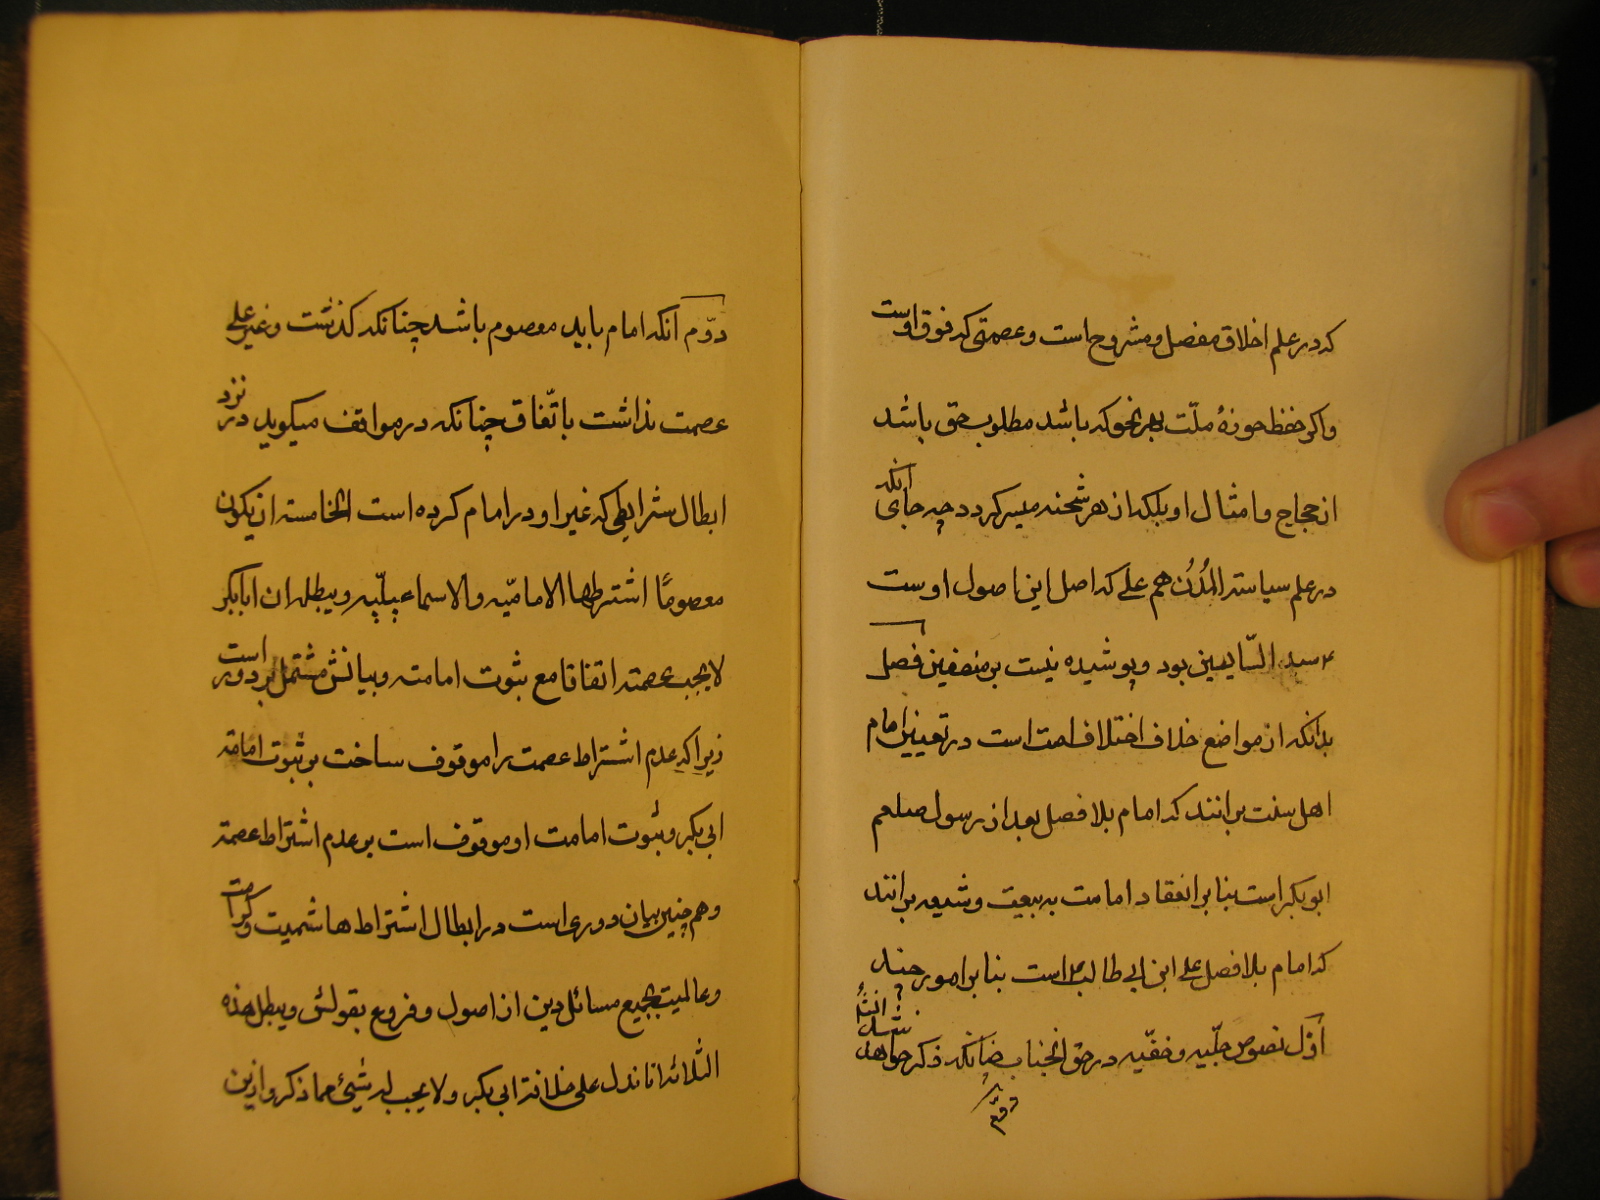 که در علم اخلاق مفصل و مشروح است و عصمتی که فوق اوست
و اکر حفظ حوزهٔ ملّت بهر نحو که باشد مطلوب حق باشد
از حجاج و امثال او بلکه از هر شحنه میسر کردد چه جای آنکه
در علم سیاسته المُدُن هم علی که اصل این اصول اوست
سید السّایسین بود و پوشیده نیست بر منصفین فصل
بدانکه از مواضع خلاف اختلاف امت است در تعیین امام
اهل سنت برانند که امام بلا فصل بعد از رسول صلعم
ابو بکر است بنا بر انعقاد امامت به بیعت و شیعه برانند
که امام بلا فصل علی ابن ابی طالب است بنا بر امور چند
اوّل نصوص جلّیه و خفّیه در حق انجناب چنانکه ذکر خواهد شد انشاء
دوّم
دوّم آنکه امام باید معصوم باشد چنانکه کذشت و غیر علی
عصمت نداشت باتّفاق چنانکه در مواقف میکوید در نزد
ابطال شرایطی که غیر او در امام کرده است الخامسته ان یکون
معصومًا اشترطها الامامیّه والاسماعیلیّه و یبطله ان ابابکر
لا یجب عصمته اتفاقا مع ثبوت امامته و بیانش مشتمل بر دور است
زیرا که عدم اشتراط عصمت را موقوف ساخت بر ثبوت امامة
ابی بکر و ثبوت امامت او موقوف است بر عدم اشتراط عصمة
و هم چنین بیان دوری است در ابطال اشتراط هاشمیت و کرامت
و عالمیت بجمیع مسائل دین از اصول و فروع بقولش و یبطل هذه
الثلاثه انا ندل علی خلافة ابی بکر ولا یجب له شیئ مما ذکر و ازین